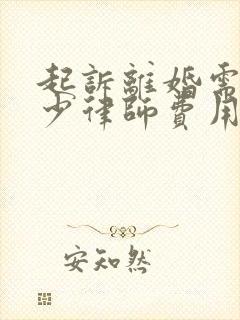 起訴離婚需
少律師費用
安知然